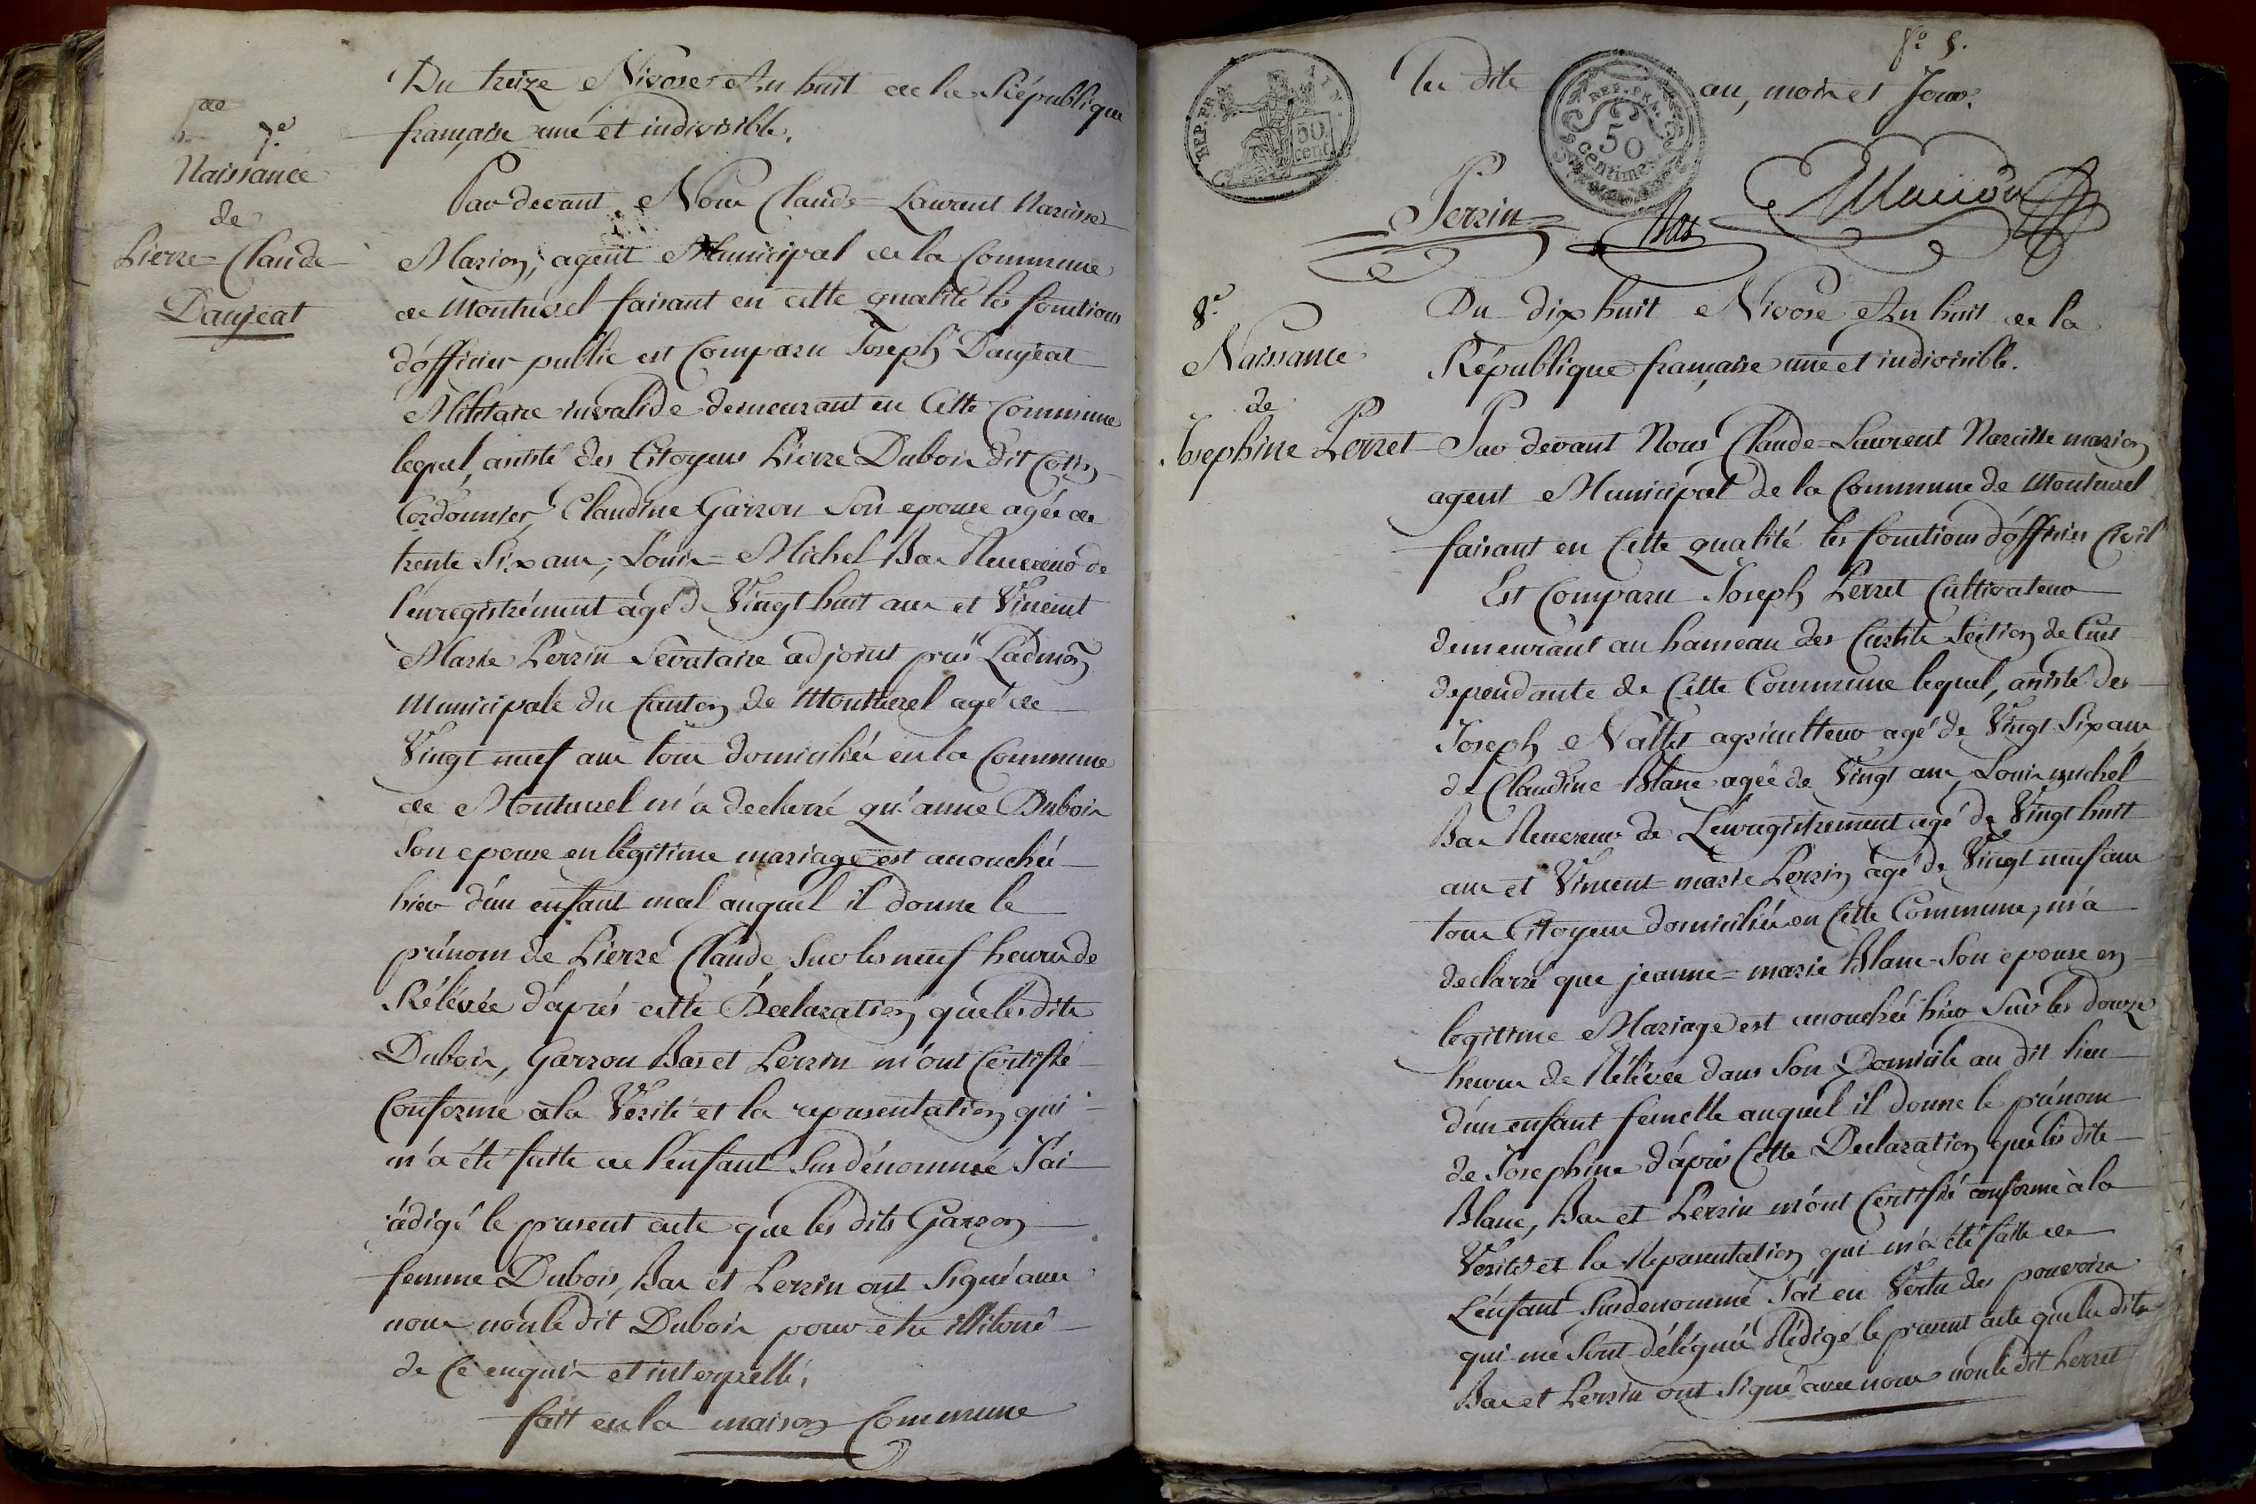 7.e
Naissance
de
Pierre=Claude
Daujeat
Du treize Nivose An huit de la République
française une et indivisible.
Par devant Nous Claude=Laurent Narcisse
Marion, agent Municipal de la Commune
de Montluel faisant en cette qualité les fonctions
d'officier public est Comparu Joseph Daujeat
Militaire invalide demeurant en Cette Commune
lequel, assisté des Citoyens Pierre Dubois dit Cotin
Cordonnier, Claudine Garzon Son epouse agée de
trente Six ans; Louis=Michel Bas Receveur de
l'enregistrément agé de Vingt huit ans et Vincent
Marie Perrin Secrataire adjoint près L'admon
Municipale du Canton de Montluel agé de
Vingt neuf ans tous domiciliés en la Commune
de Montluel m'a declarré qu'anne Dubois
Son epouse en légitime mariage est accouchée
hier d'un enfant mal auquel il donne le
prénom de Pierre Claude Sur les neuf heures de
Rélévée d'aprés cette Déclaration que les dits
Dubois, Garzon Bas et Perrin m'ont Certifié
Conforme à la Vérité et la representation qui
m'a été faitte de l'enfant Sus dénommé J'ai
rédigé le present acte que les dits Garzon
femme Dubois, Bas et Perrin ont Signé avec
nous non le dit Dubois pour etre illitoré
de Ce enquis et interpellé,
fait en la maison Commune
f.o 5.
REP. FRA.
50
cent.
REP. FRA.
50
centimes
les dits an, mois et Jour.
Perrin Bas Marion
8.e
Naissance
de
Josephine Perret
Du dix huit Nivose An huit de la
République française une et indivisible.
Par devant Nous Claude=Laurent Narcisse marion
agent Municipal de la Commune de Montluel
faisant en Cette qualité les fonctions d'officier Civil
Est Comparu Joseph Perret Cultivateur
demeurant au hameau des Section de
dependante de Cette Commune lequel, assisté des
Joseph Nallet agriculteur agé de Vingt Six ans
de Claudine Blanc agée de Vingt ans, Louis michel
Bas Receveur de L'enregistrement agé de Vingt huit
ans et Vincent=marie Perrin agé de Vingt neuf ans
tous Citoyens domiciliés en Cette Commune, m'a
declarré que jeanne=marie Blanc Son epouse en
legitime Mariage est accouchée hier Sur les douze
heures de Rélévée dans Son Domicile au dit lieu
d'un enfant femelle auquel il donne le prénom
de Josephine d'après Cette Declaration que les dits
Blanc, Bas et Perrin m'ont Certifié conforme à la
Vérité et la Representation qui m'a été faite de
L'enfant Susdenommé J'ai en Vertu des pouvoirs
qui me Sont délégués Rédigé le présent acte que les dits
Bas et Perrin ont Signé avec nous non le dit Perret